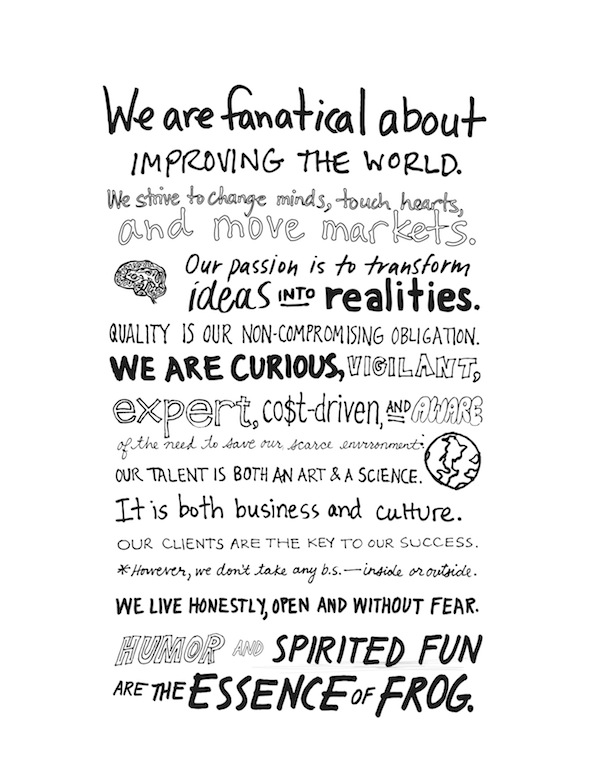 We are fanatical about
IMPROVING THE WORLD.
We strive to change minds, touch hearts,
and move markets.
Our passion is to transform
ideas INTO realities.
QUALITY IS OUR NON-COMPROMISING OBLIGATION.
WE ARE CURIOUS, VIGILANT,
expert, co$t-driven, AND AWARE
of the need to save our scarce environment.
OUR TALENT IS BOTH AN ART & A SCIENCE.
It is both business and culture.
OUR CLIENTS ARE THE KEY TO OUR SUCCESS.
*However, we don't take any b.s.—inside or outside.
WE LIVE HONESTLY, OPEN AND WITHOUT FEAR.
HUMOR AND SPIRITED FUN
ARE THE ESSENCE OF FROG.